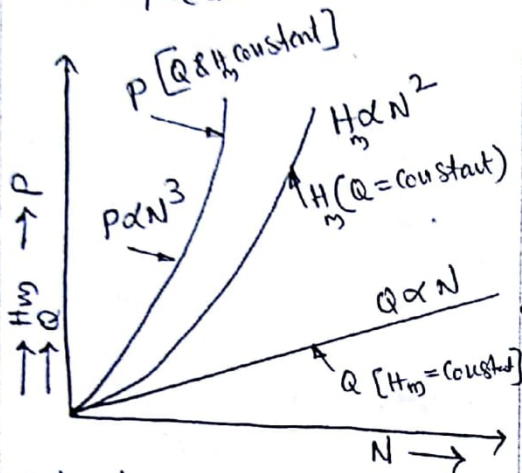 P [Q & Hm constant]
Hm ∝ N²
Hm (Q = constant)
P ∝ N³
Q ∝ N
Q [Hm = constant]
→ P
→ Hm
→ Q
N →